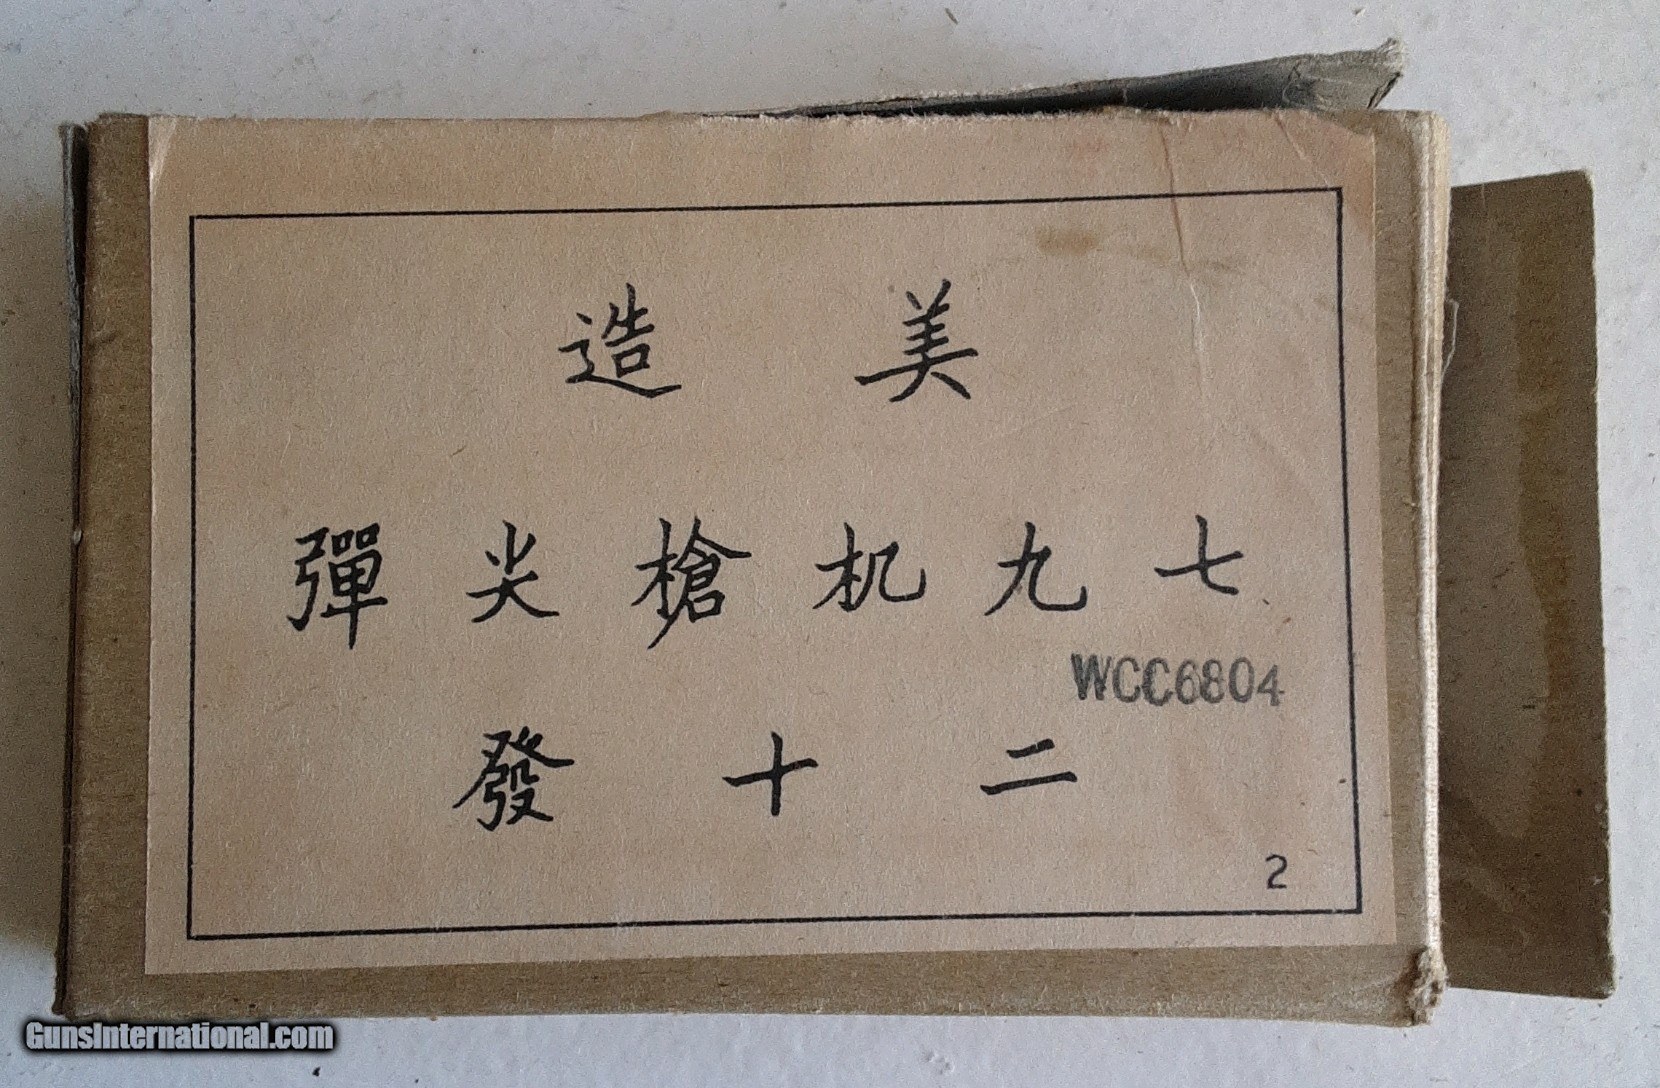 美造
七九机槍尖彈
WCC6804
二十發
2
GunsInternational.com